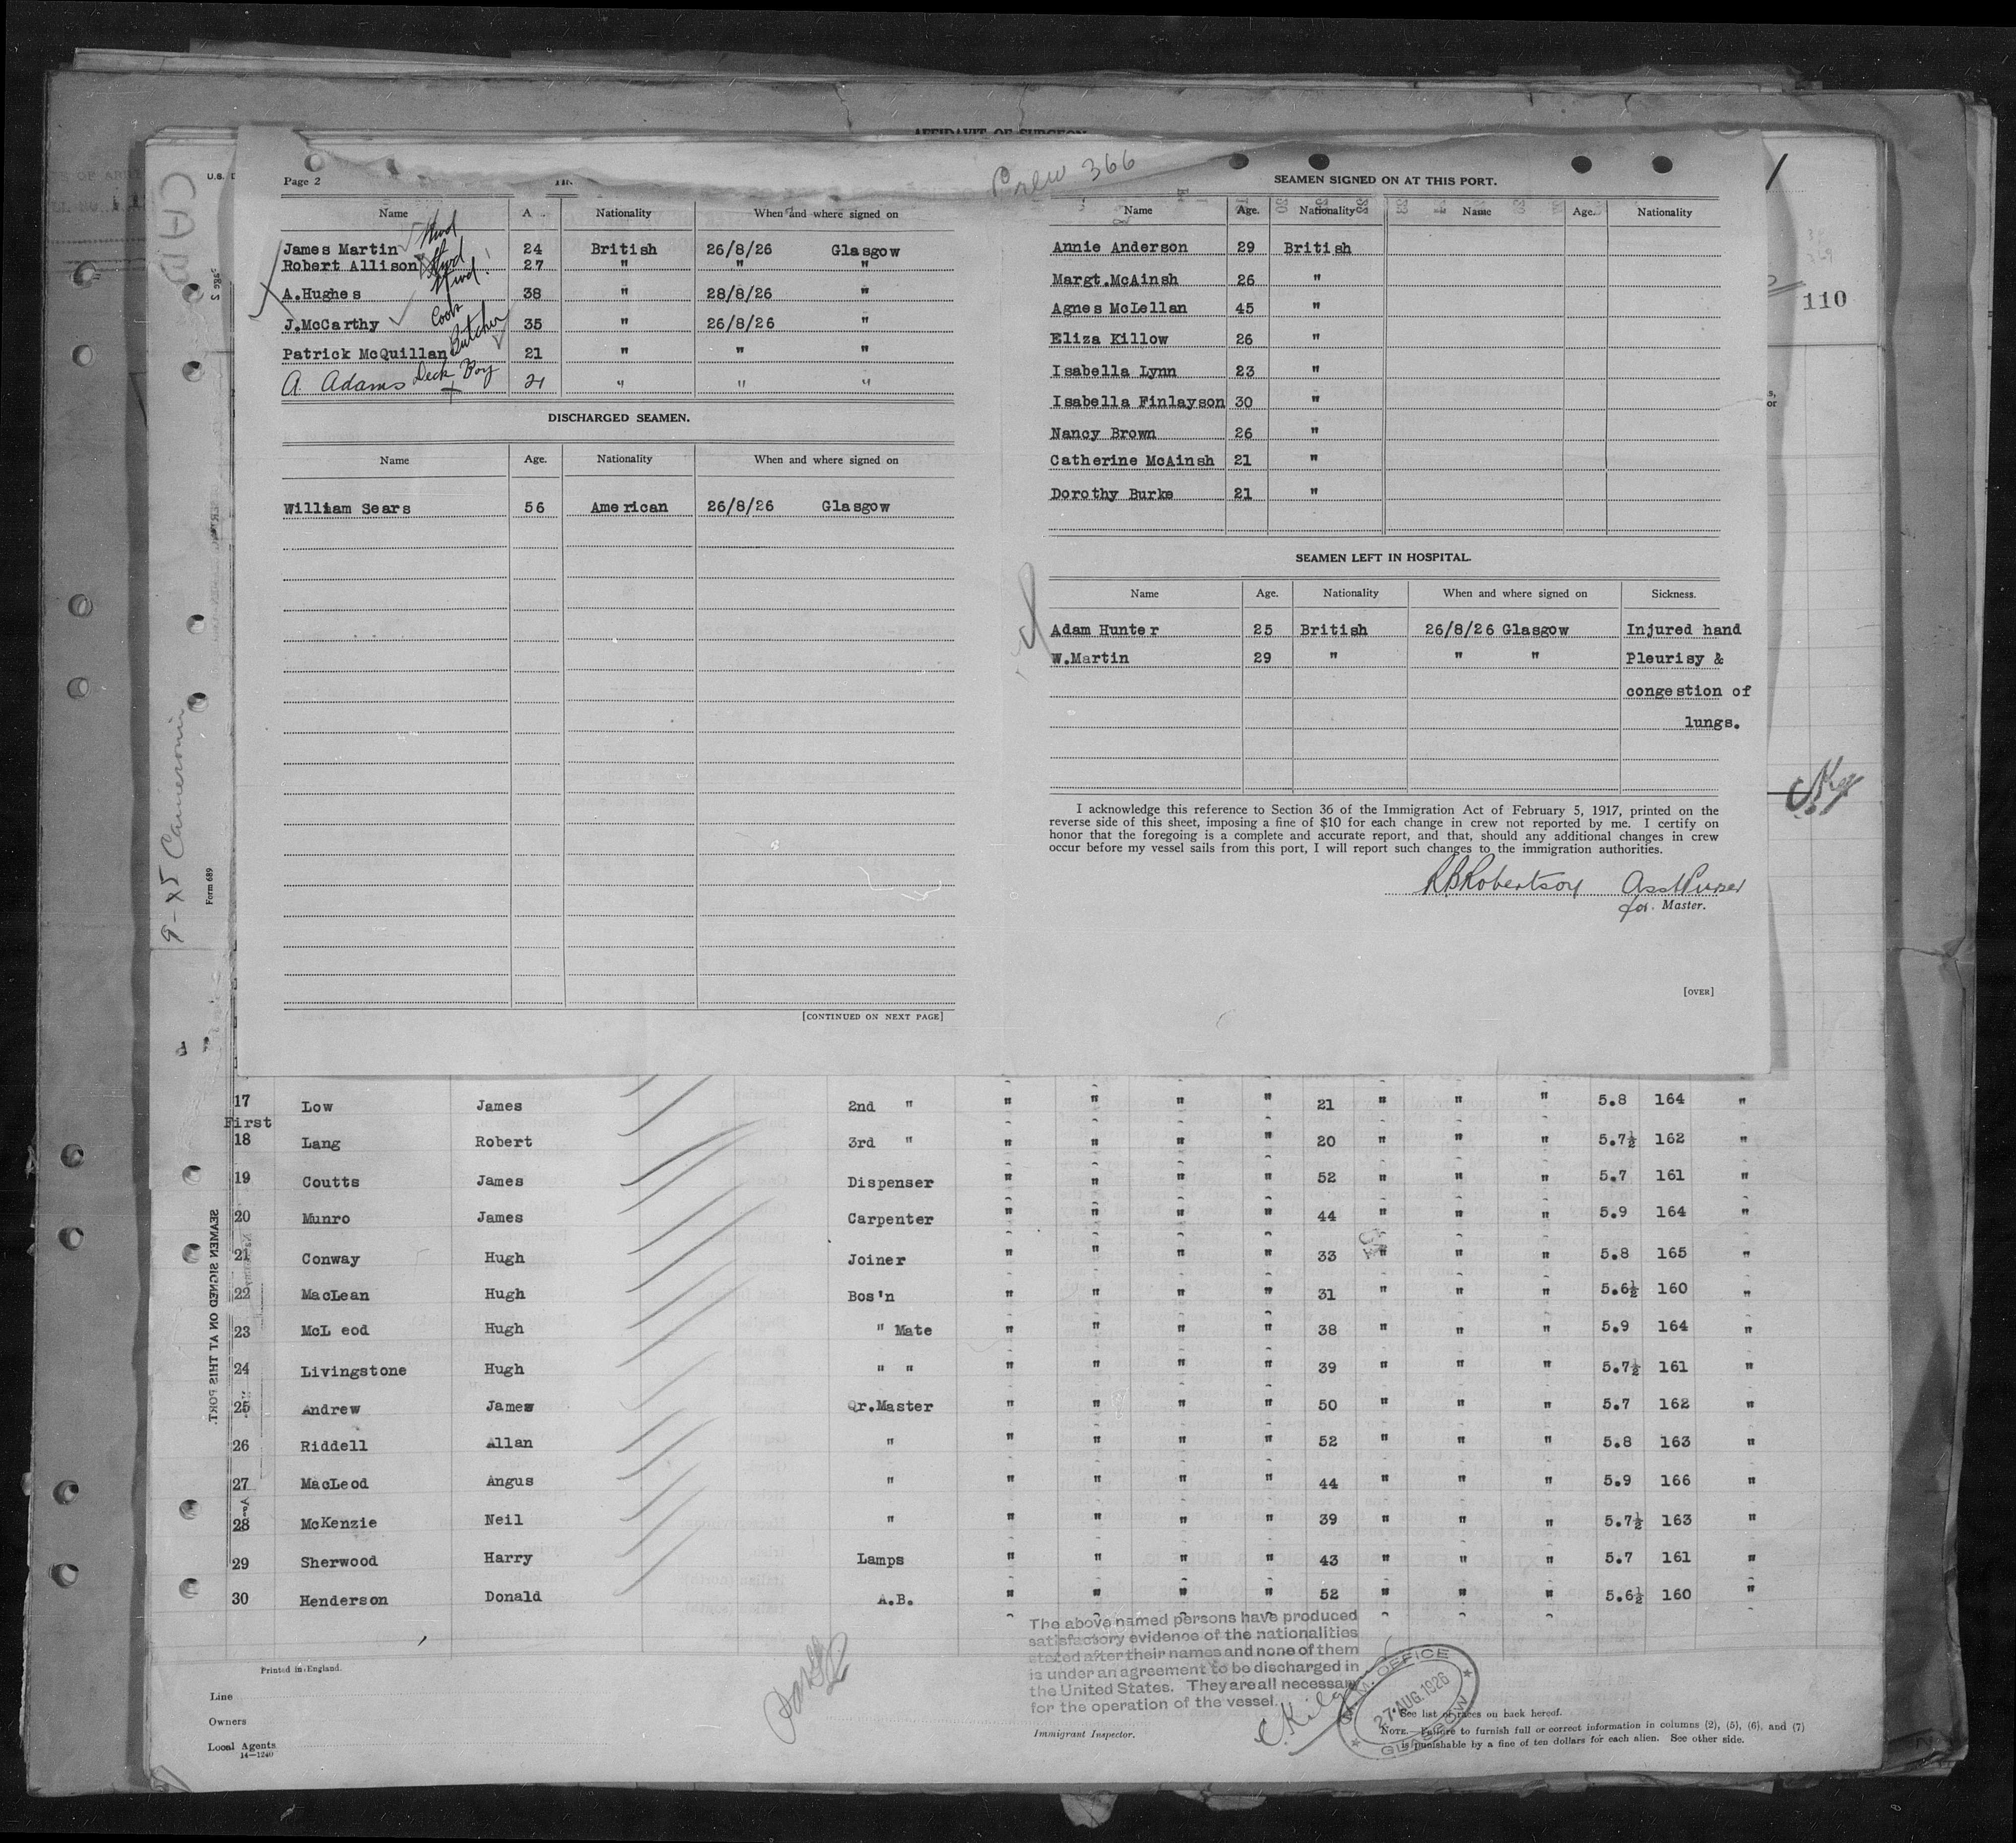 AFFIDAVIT OF SURGEON
Crew 366
Page 2
Name A Nationality When and where signed on
James Martin Stwd 24 British 26/8/26 Glasgow
Robert Allison Stwd 27 " " "
A.Hughes Stwd 38 " 28/8/26 "
J.McCarthy Cook 35 " 26/8/26 "
Patrick McQuillan Butcher 21 " " "
A. Adams Deck Boy 21 " " "
DISCHARGED SEAMEN.
Name Age. Nationality When and where signed on
William Sears 56 American 26/8/26 Glasgow
[CONTINUED ON NEXT PAGE]
SEAMEN SIGNED ON AT THIS PORT.
Name Age. Nationality Name Age. Nationality
Annie Anderson 29 British
Margt.McAinsh 26 "
Agnes McLellan 45 "
Eliza Killow 26 "
Isabella Lynn 23 "
Isabella Finlayson 30 "
Nancy Brown 26 "
Catherine McAinsh 21 "
Dorothy Burke 21 "
SEAMEN LEFT IN HOSPITAL.
Name Age. Nationality When and where signed on Sickness.
Adam Hunter 25 British 26/8/26 Glasgow Injured hand
W.Martin 29 " " " Pleurisy &
congestion of
lungs.
I acknowledge this reference to Section 36 of the Immigration Act of February 5, 1917, printed on the
reverse side of this sheet, imposing a fine of $10 for each change in crew not reported by me. I certify on
honor that the foregoing is a complete and accurate report, and that, should any additional changes in crew
occur before my vessel sails from this port, I will report such changes to the immigration authorities.
RBRobertson Asst Purser
for. Master.
[OVER]
110
U.S. D
Page 2
9-25 Cameronia
Form 689
SEAMEN SIGNED ON AT THIS PORT.
17 Low James 2nd " " " " " 21 " " " 5.8 164 "
First
18 Lang Robert 3rd " " " " " 20 " " " 5.7½ 162 "
19 Coutts James Dispenser " " " " 52 " " " 5.7 161 "
20 Munro James Carpenter " " " " 44 " " " 5.9 164 "
21 Conway Hugh Joiner " " " " 33 " " " 5.8 165 "
22 MacLean Hugh Bos'n " " " " 31 " " " 5.6½ 160 "
23 McL eod Hugh " Mate " " " " 38 " " " 5.9 164 "
24 Livingstone Hugh " " " " " " 39 " " " 5.7½ 161 "
25 Andrew James Qr.Master " " " " 50 " " " 5.7 162 "
26 Riddell Allan " " " " " 52 " " " 5.8 163 "
27 MacLeod Angus " " " " " 44 " " " 5.9 166 "
28 McKenzie Neil " " " " " 39 " " " 5.7½ 163 "
29 Sherwood Harry Lamps " " " " 43 " " " 5.7 161 "
30 Henderson Donald A.B. " " " " 52 " " " 5.6½ 160 "
The above named persons have produced
satisfactory evidence of the nationalities
stated after their names and none of them
is under an agreement to be discharged in
the United States. They are all necessary
for the operation of the vessel.
M.M. OFFICE
27 AUG. 1926
GLASGOW
Printed in England.
Line
Owners
Local Agents
14—1240
Immigrant Inspector.
See list of races on back hereof.
NOTE.—Failure to furnish full or correct information in columns (2), (5), (6), and (7)
is punishable by a fine of ten dollars for each alien. See other side.